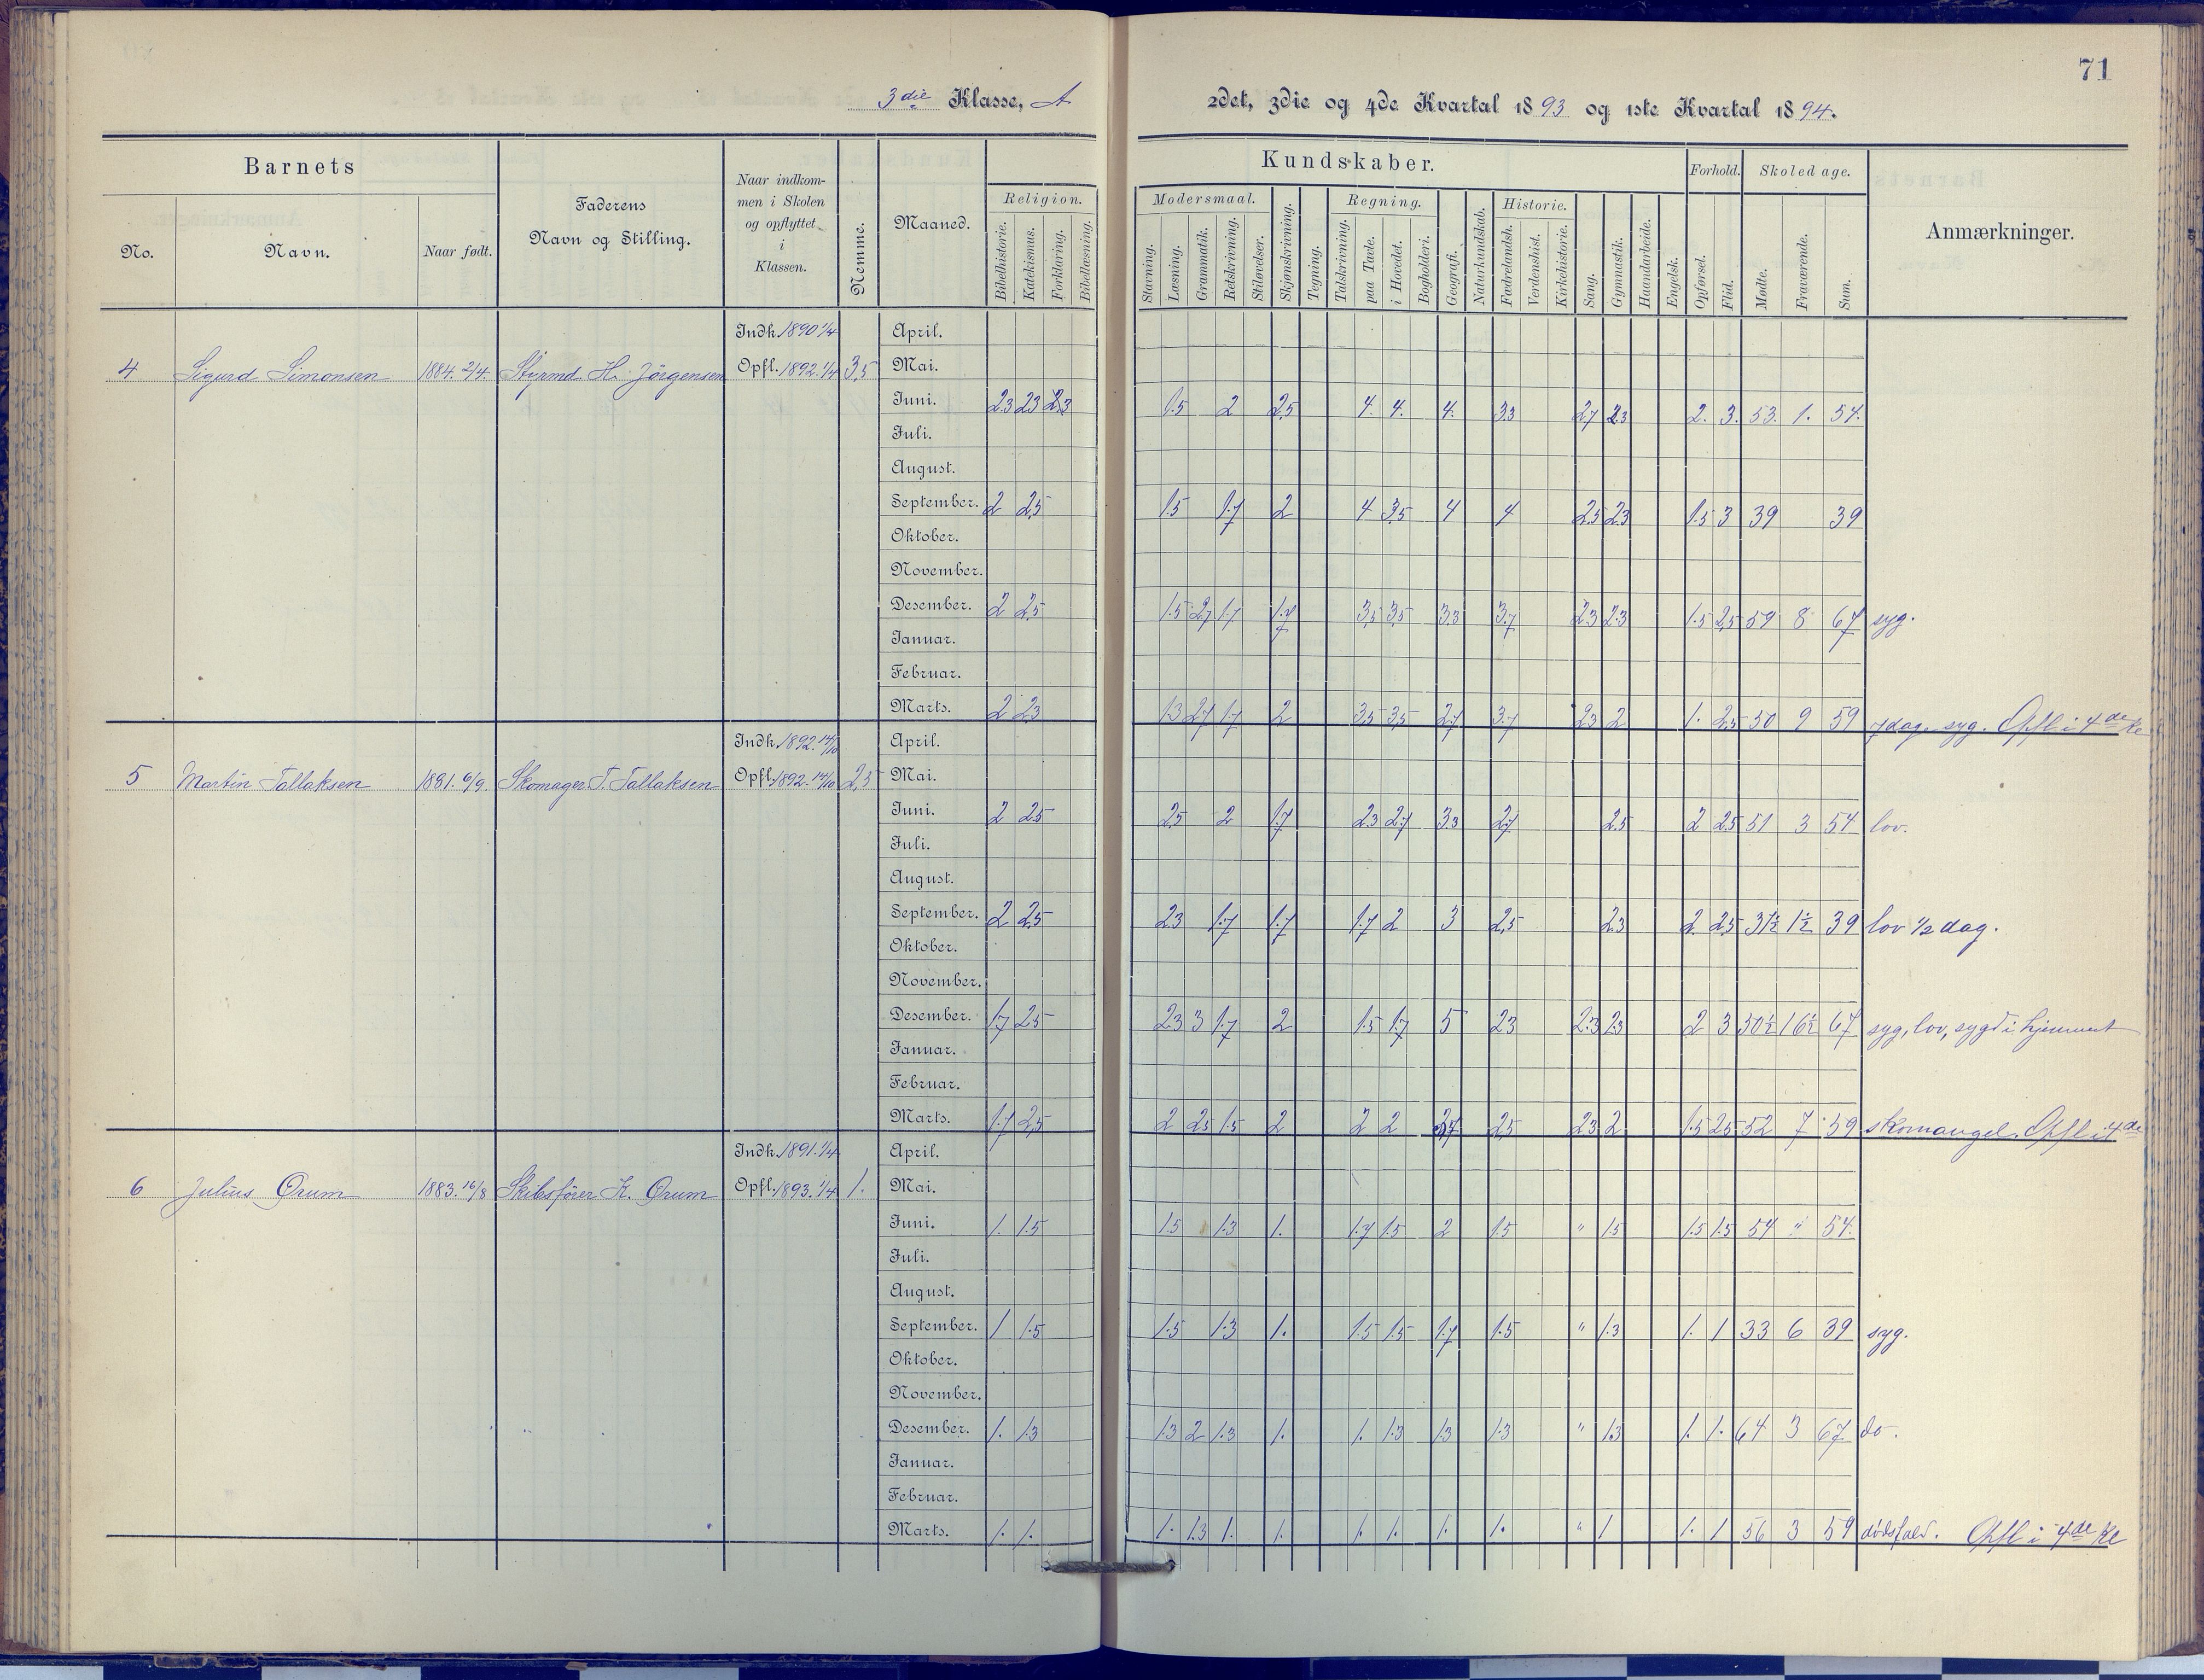 71
3die Klasse, A
2det, 3die og 4de Kvartal 1893 og 1ste Kvartal 1894.
Barnets
Faderens Navn og Stilling.
Naar indkommen i Skolen og opflyttet i Klassen.
Nemme.
Maaned.
Kundskaber.
Forhold.
Skoledage.
Anmærkninger.
No.
Navn.
Naar født.
Religion.
Modersmaal.
Regning.
Historie.
Bibelhistorie. Katekismus. Forklaring. Bibellæsning. Stavning. Læsning. Grammatik. Retskrivning. Stiløvelser. Skjønskrivning. Tegning. Talskrivning. paa Tavle. i Hovedet. Bogholderi. Geografi. Naturkundskab. Fædrelandsh. Verdenshist. Kirkehistorie. Sang. Gymnastik. Haandarbeide. Engelsk. Opførsel. Flid. Mødte. Fraværende. Sum.
Indk. 1890 1/4 April.
4 Sigurd Simonsen 1884. 2/4. Styrmd. H. Jörgensen Opfl. 1892. 1/4 3,5 Mai.
Juni. 2.3 2.3 2.3 1.5 2 2.5 4. 4. 4. 3.3 2.7 2.3 2. 3. 53. 1. 54.
Juli.
August.
September. 2 2.5 1.5 1.7 2 4 3.5 4 4 2.5 2.3 1.5 3 39 39
Oktober.
November.
Desember. 2 2.5 1.5 2.7 1.7 1.7 3.5 3.5 3.3 3.7 2.3 2.3 1.5 2.5 59 8 67 syg.
Januar.
Februar.
Marts. 2 2.3 1.3 2.7 1.7 2 3.5 3.5 2.7 3.7 2.3 2 1. 2.5 50 9 59 7 dage syg. Opfl i 4de Kl
Indk. 1892. 14/10 April.
5 Martin Tallaksen 1881. 6/9. Skomager T. Tallaksen Opfl. 1892. 14/10 2,5 Mai.
Juni. 2 2.5 2.5 2 1.7 2.3 2.7 3.3 2.7 2.5 2 2.5 51 3 54 lov.
Juli.
August.
September. 2 2.5 2.3 1.7 1.7 1.7 2 3 2.5 2.3 2 2.5 1½ 39 lov 1/2 dag.
Oktober.
November.
Desember. 1.7 2.5 2.3 3 1.7 2 1.5 1.7 5 2.3 2.3 2.3 2 3 50½ 16½ 67 syg, lov, sygd i hjemmet
Januar.
Februar.
Marts. 1.7 2.5 2 2.5 1.5 2 2 2 2.7 2.5 2.3 2 1.5 2.5 52 7 59 skomangel. Opfl i 4de
Indk. 1891. 1/4 April.
6 Julius Ørum 1883. 16/8 Skibsfører K. Ørum Opfl. 1893. 1/4 1. Mai.
Juni. 1. 1.5 1.5 1.3 1. 1.7 1.5 2 1.5 " 1.5 1.5 1.5 54 " 54.
Juli.
August.
September. 1 1.5 1.5 1.3 1. 1.5 1.5 1.7 1.5 " 1.3 1. 1 33 6 39 syg.
Oktober.
November.
Desember. 1. 1.3 1.3 2 1.3 1. 1. 1.3 1.3 1.3 " 1.3 1. 1. 64 3 67 do.
Januar.
Februar.
Marts. 1. 1. 1. 1.3 1. 1. 1. 1. 1. 1. " 1 1. 1 56 3 59 dødsfald. Opfl i 4de Kl